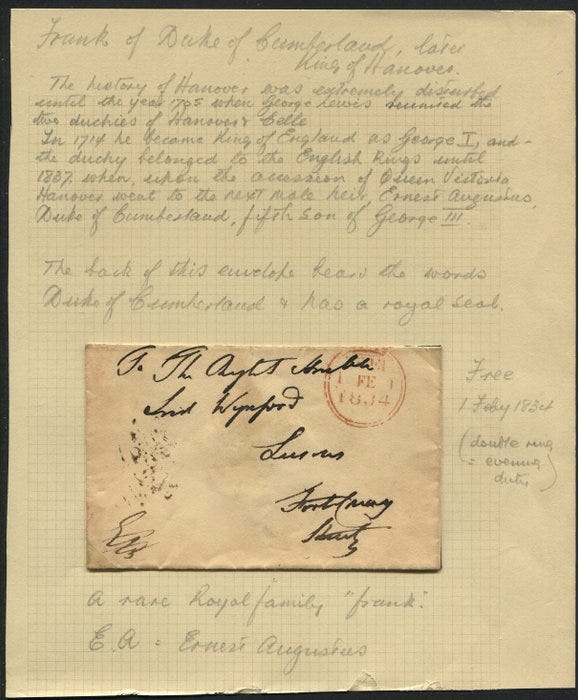 Frank of Duke of Cumberland, later
King of Hanover.
The history of Hanover was extremely disturbed
until the year 1705 when George Lewis reunited the
two duchies of Hanover & Celle
In 1714 he became King of England as George I, and
the duchy belonged to the English Kings until
1837 when, upon the accession of Queen Victoria
Hanover went to the next male heir, Ernest Augustus,
Duke of Cumberland, fifth son of George III.
The back of this envelope bears the words
Duke of Cumberland & has a royal seal.
To The Right Honble
Lord Wynford
FE
1834
Free
1 Feby 1834
(double ring
= evening
duty)
A rare Royal family "frank".
E.A = Ernest Augustus